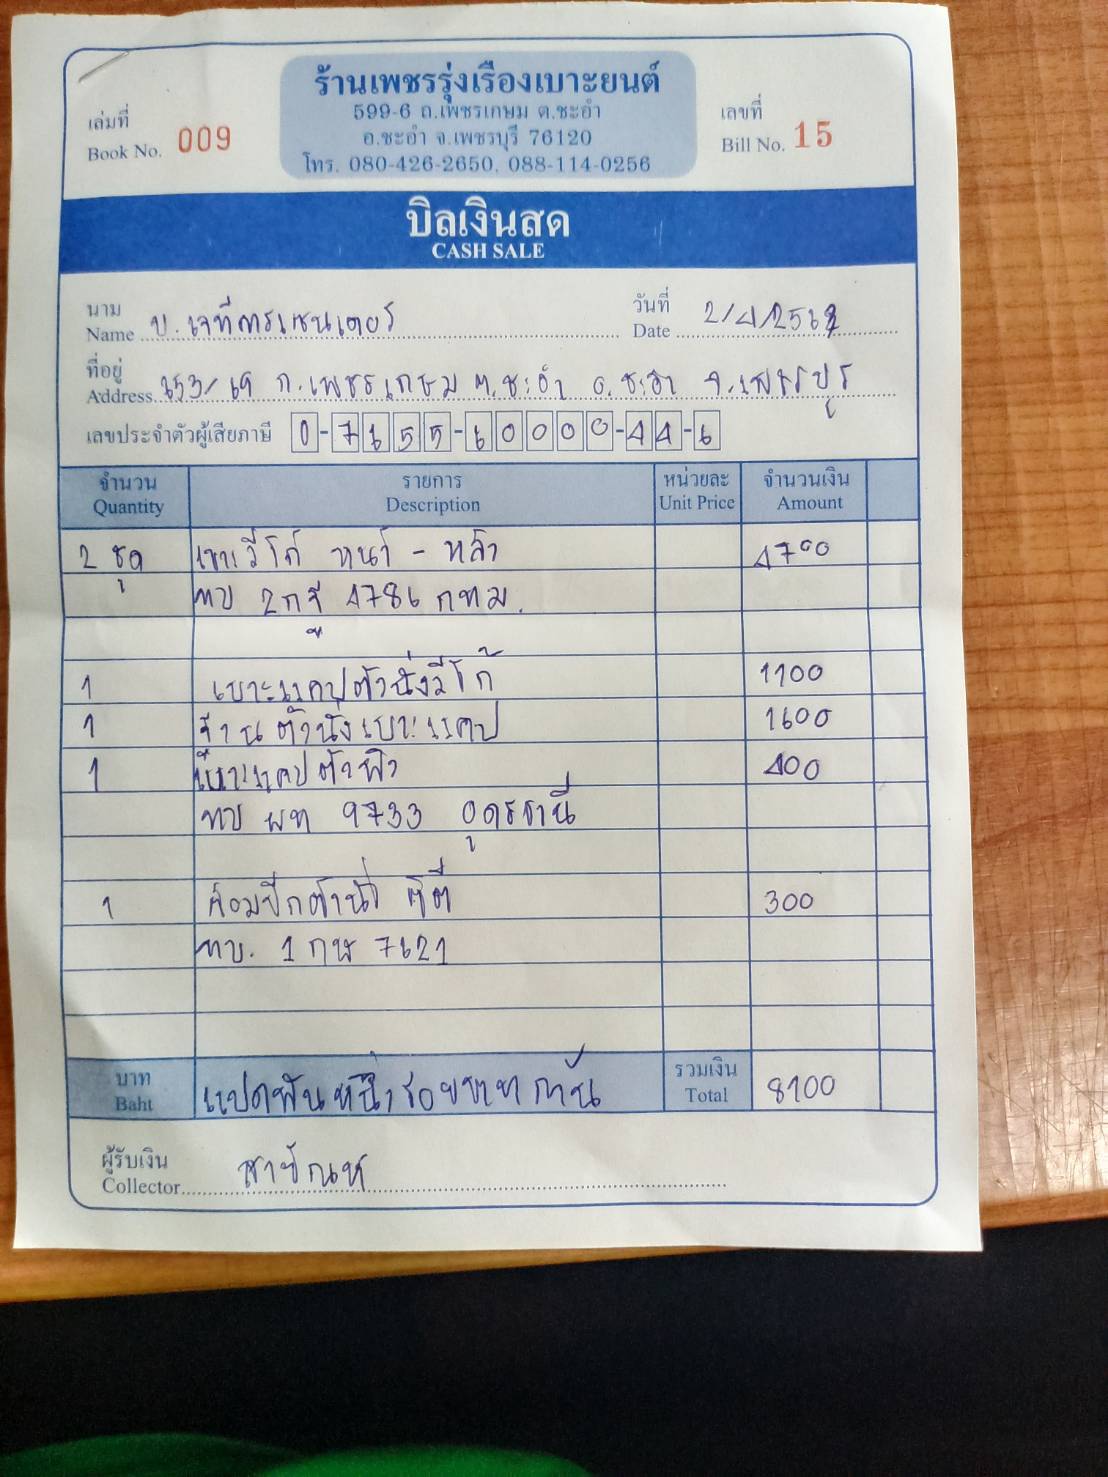 ร้านเพชรรุ่งเรืองเบาะยนต์
599-6 ถ.เพชรเกษม ต.ชะอำ
อ.ชะอำ จ.เพชรบุรี 76120
โทร. 080-426-2650, 088-114-0256
เล่มที่
Book No. 009
เลขที่
Bill No. 15
บิลเงินสด
CASH SALE
นาม
Name บ. เจทีคาร์เซนเตอร์
วันที่
Date 2/4/2568
ที่อยู่
Address ถ.เพชรเกษม ต.ชะอำ อ.ชะอำ จ.เพชรบุรี
เลขประจำตัวผู้เสียภาษี 0-7655-60000-44-6
จำนวน รายการ หน่วยละ จำนวนเงิน
Quantity Description Unit Price Amount
2 ชุด เบาะวีโก้ หน้า - หลัง 4700
ทบ 2กจู 4786 กทม.
1 เบาะแคปตัวนั่งวีโก้ 1100
1 ฐาน ตัวนั่งเบาะแคป 1600
1 เบาะแคปตัวพิง 400
ทบ ผท 9733 อุดรธานี
1 ซ่อมปีกตัวนั่ง ซิตี้ 300
ทบ. 1 กษ 7621
บาท
Baht แปดพันหนึ่งร้อยบาทถ้วน
รวมเงิน
Total 8100
ผู้รับเงิน
Collector สายัณห์